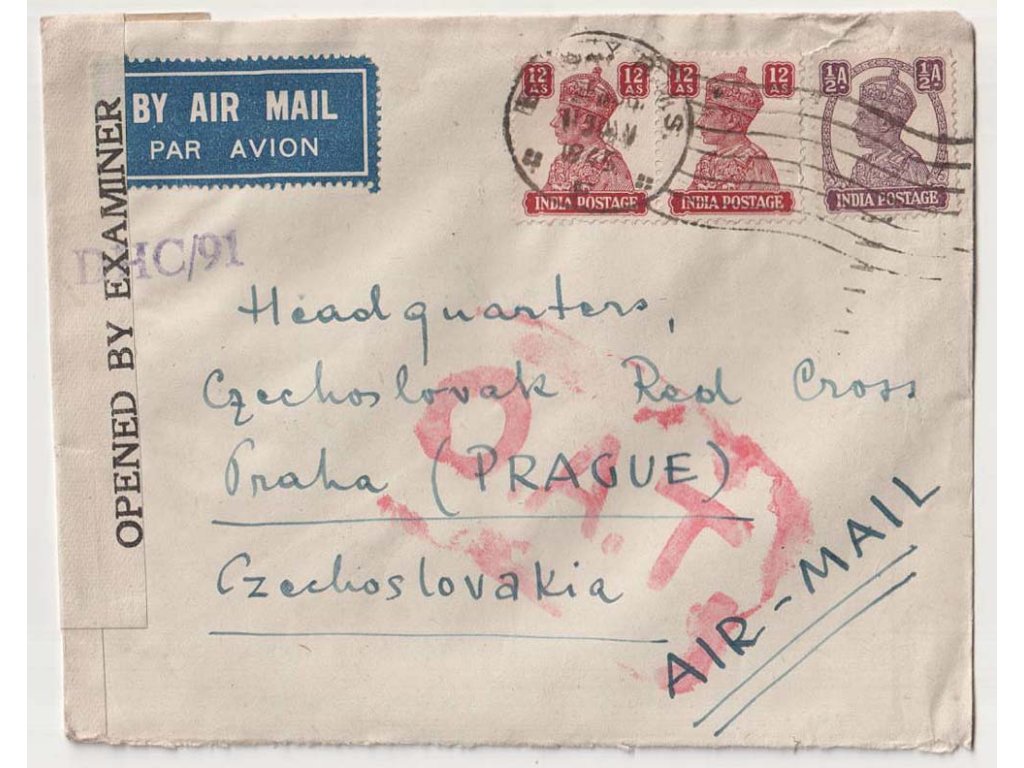 BY AIR MAIL
PAR AVION
OPENED BY EXAMINER
DHC/91
12 AS 12 AS
INDIA POSTAGE
12 AS 12 AS
INDIA POSTAGE
½ A ½ A
INDIA POSTAGE
Headquarters,
Czechoslovak Red Cross
Praha (PRAGUE)
Czechoslovakia
AIR-MAIL
O.A.T